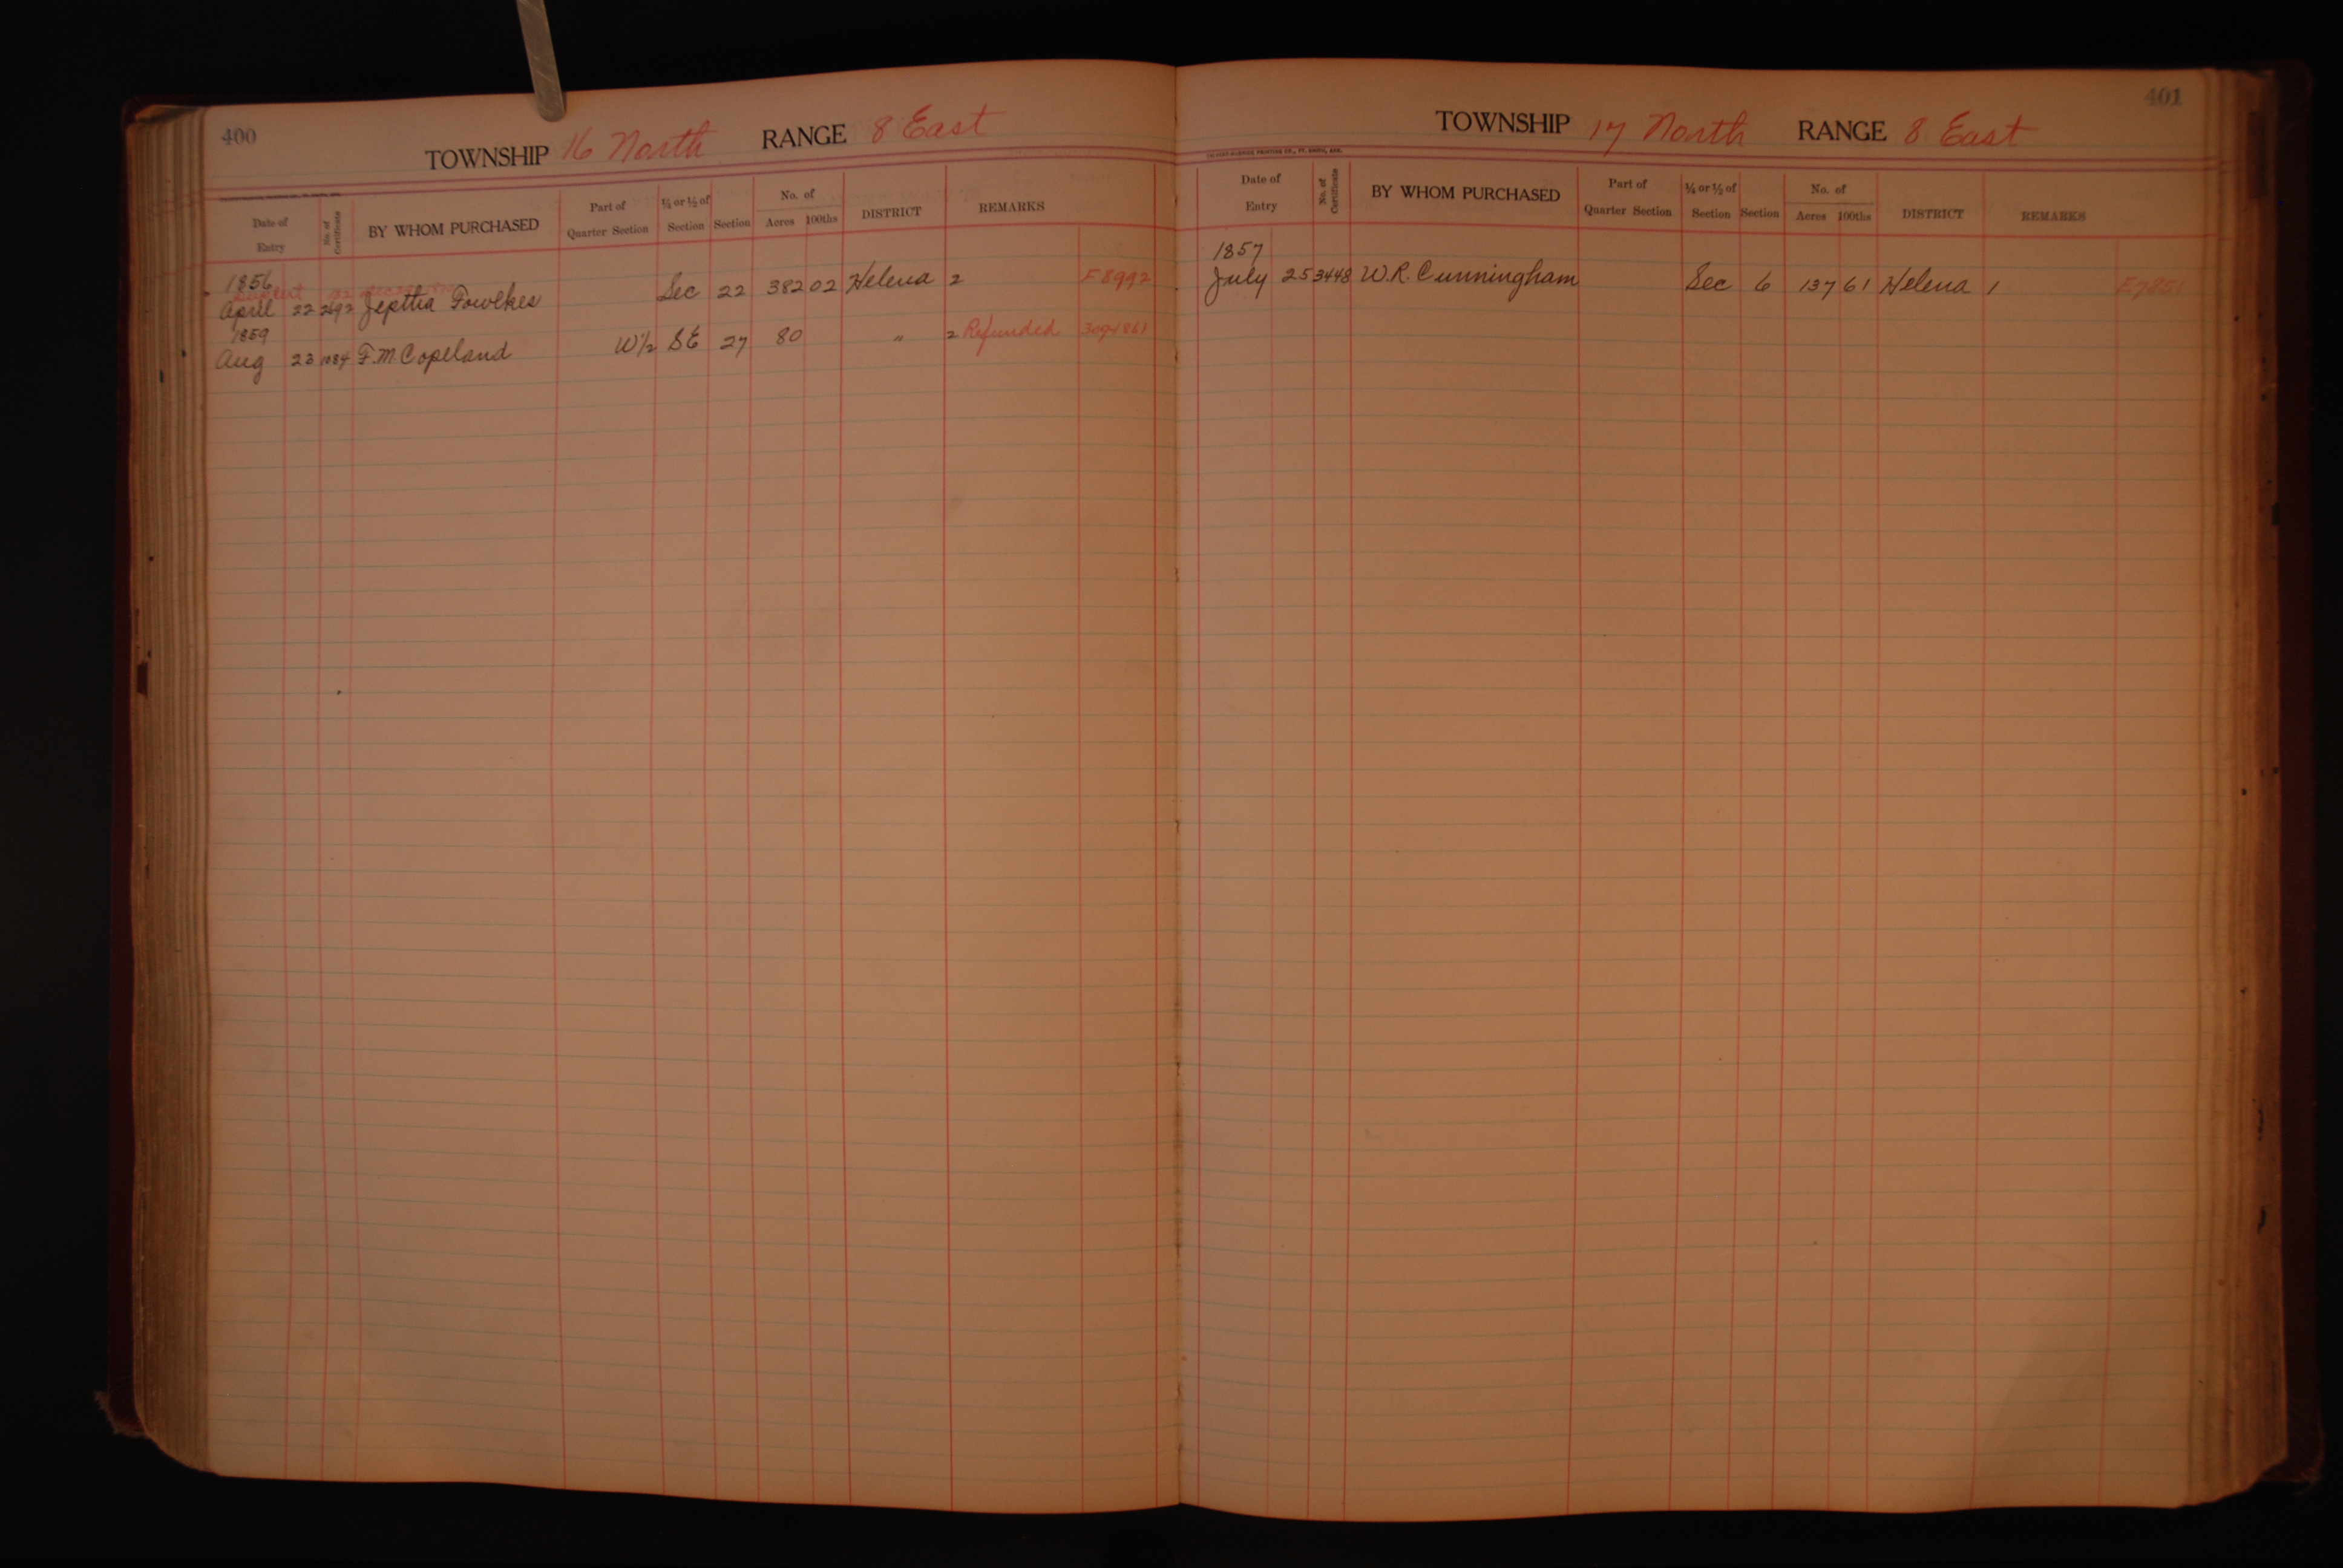 400
TOWNSHIP 16 North RANGE 8 East
Date of Entry No. of Certificate BY WHOM PURCHASED Part of Quarter Section ¼ or ½ of Section Section No. of Acres 100ths DISTRICT REMARKS
1856
April 22 2692 Jeptha Fowlkes Sec 22 382 02 Helena 2 F8992
1859
Aug 23 1084 F.M. Copeland W½ SE 27 80 " 2 Refunded 3094861
401
TOWNSHIP 17 North RANGE 8 East
Date of Entry No. of Certificate BY WHOM PURCHASED Part of Quarter Section ¼ or ½ of Section Section No. of Acres 100ths DISTRICT REMARKS
1857
July 25 3448 W.R. Cunningham Sec 6 137 61 Helena 1